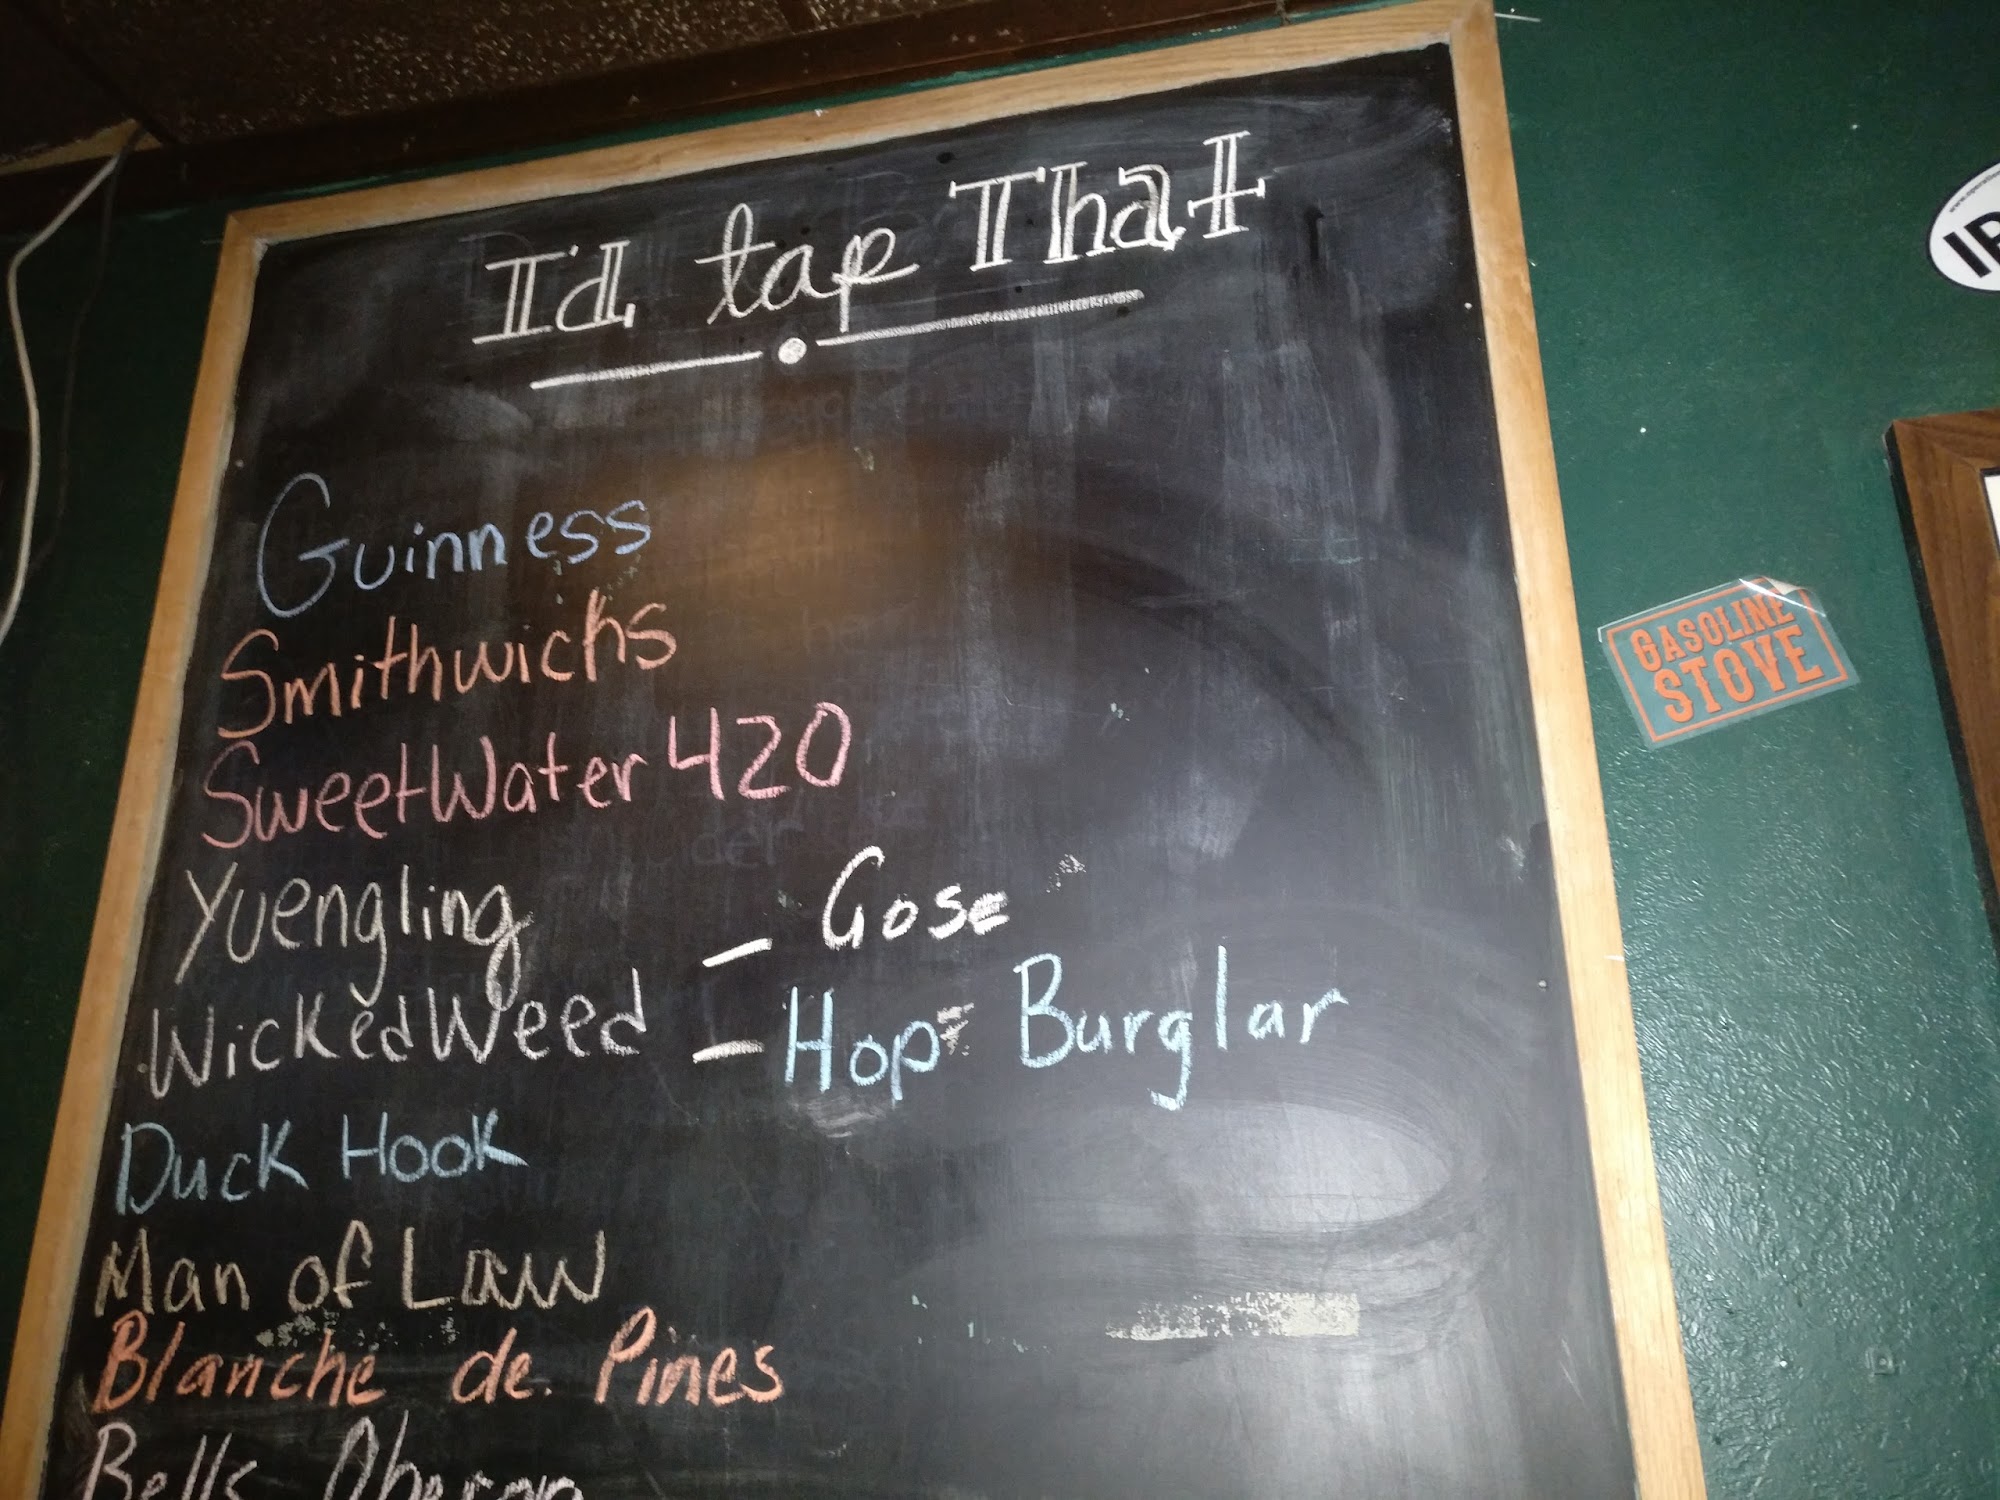 I'd tap That
Guinness
Smithwichs
SweetWater 420
Yuengling
Wicked Weed - Gose
- Hop Burglar
Duck Hook
Man of Law
Blanche de. Pines
Bells Oberon
GASOLINE
STOVE